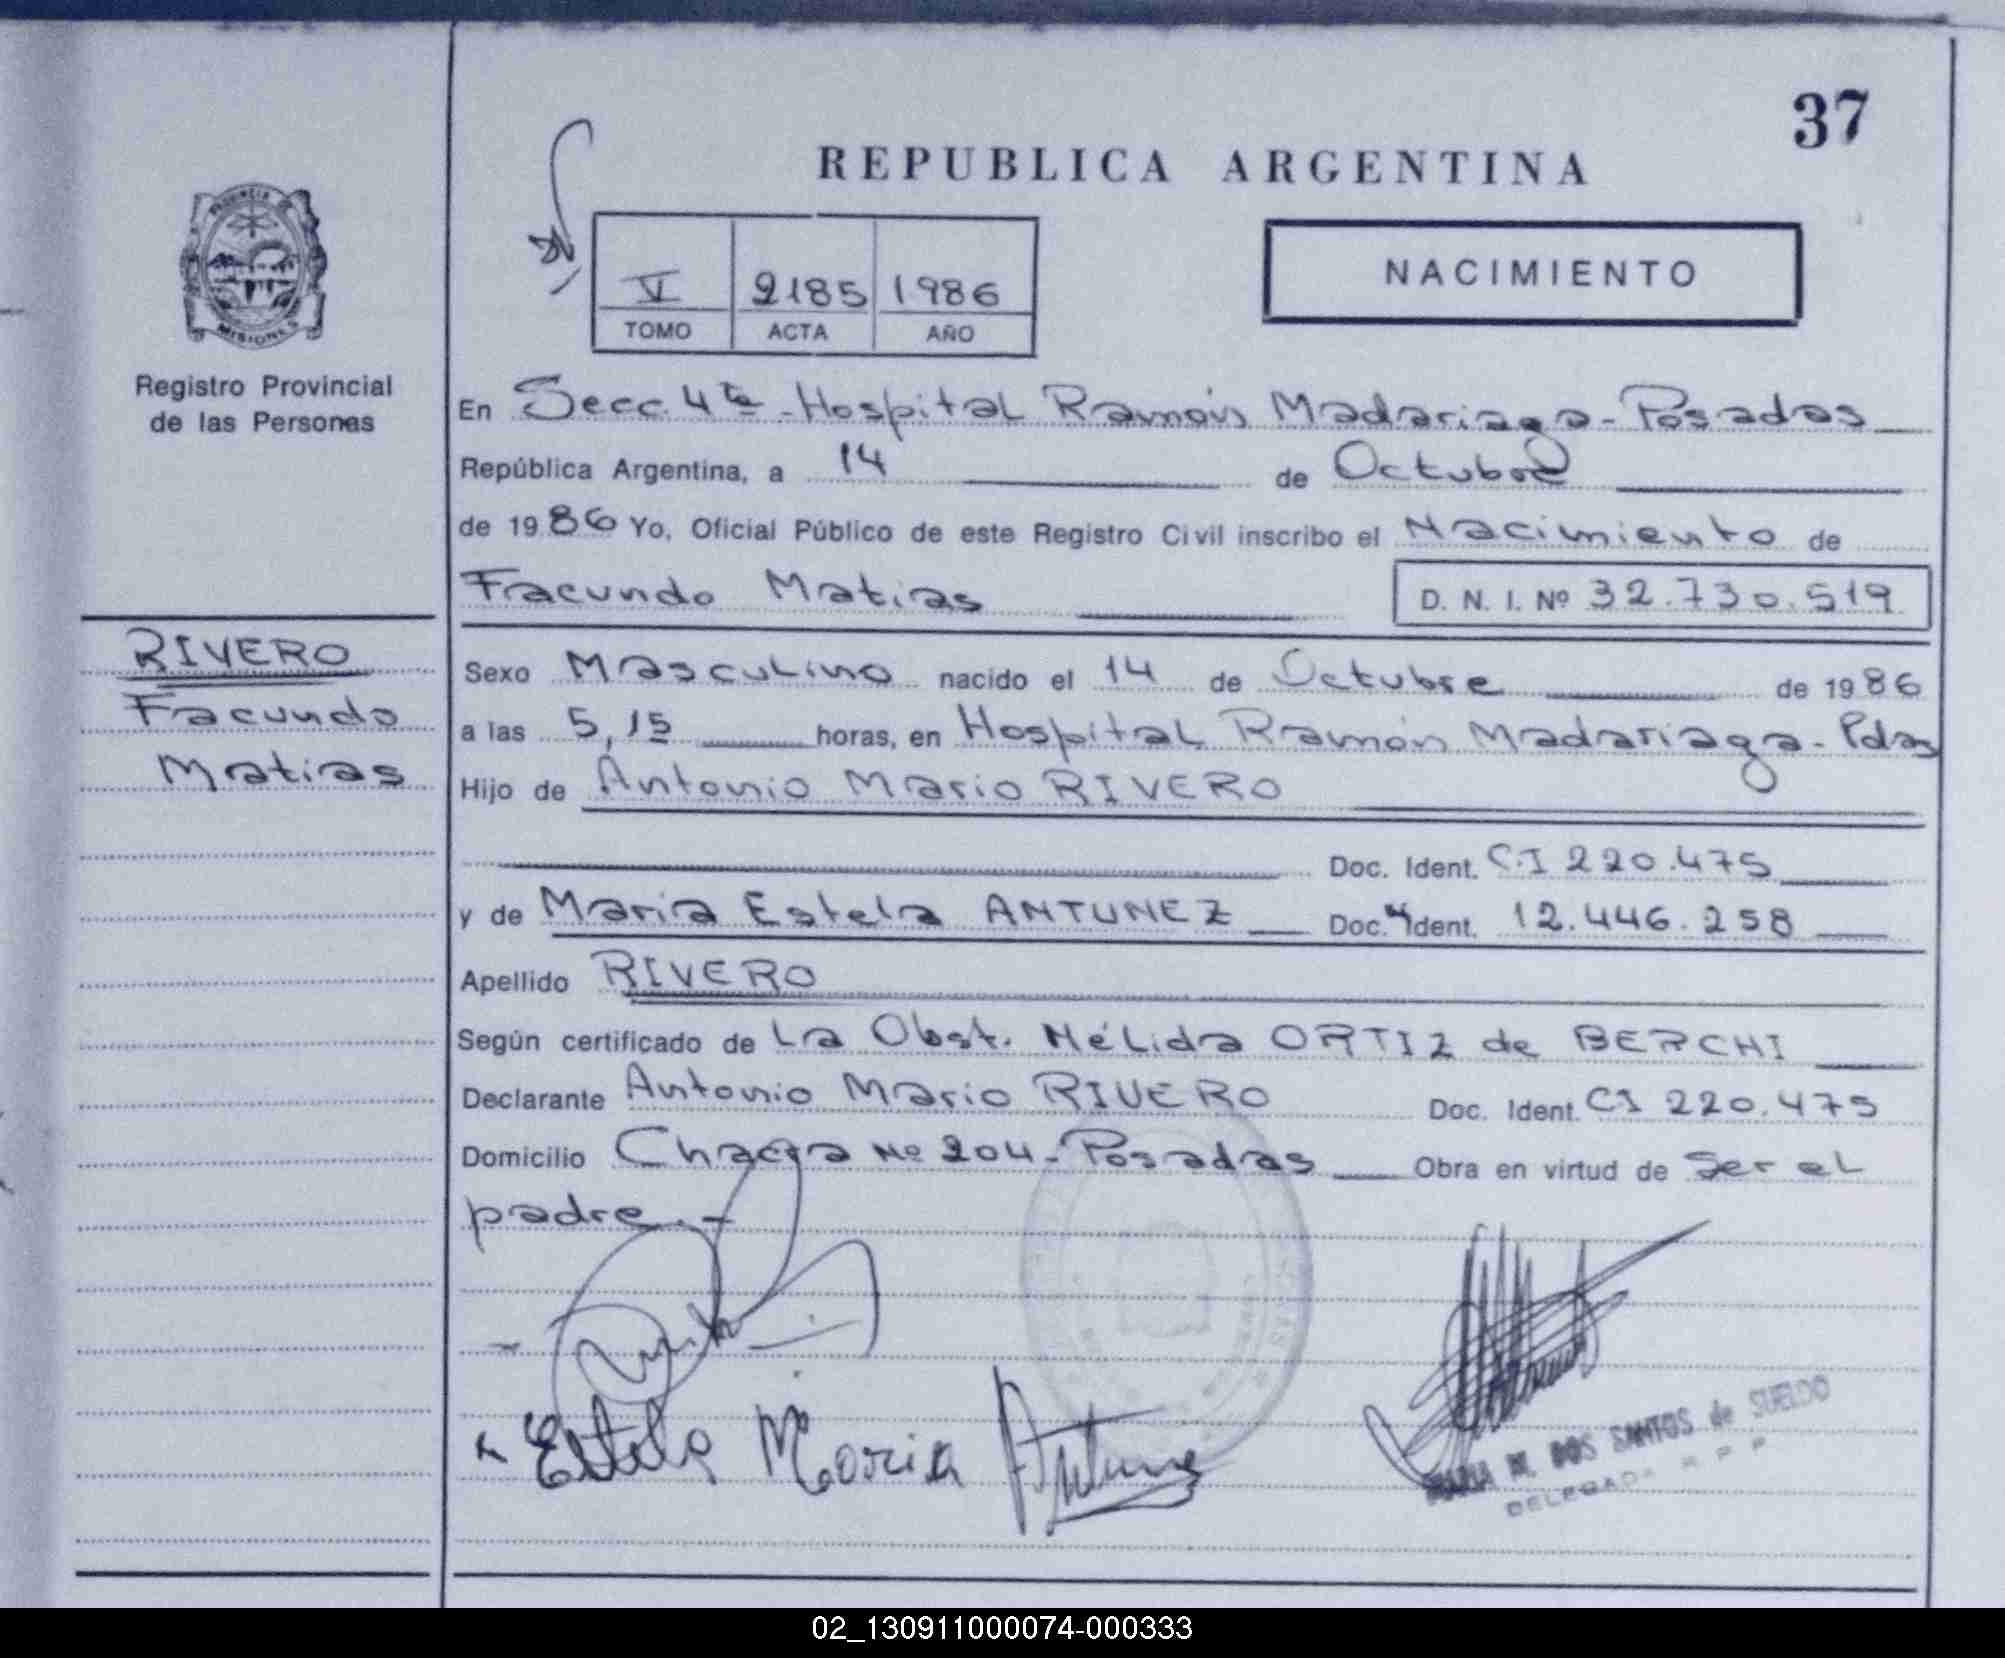 37
REPUBLICA ARGENTINA
PROVINCIA DE
MISIONES
V 2185 1986
TOMO ACTA AÑO
NACIMIENTO
Registro Provincial
de las Personas
En Secc. 4ta - Hospital Ramón Madariaga - Posadas
República Argentina, a 14 de Octubre
de 1986 Yo, Oficial Público de este Registro Civil inscribo el Nacimiento de
Facundo Matias D. N. I. Nº 32.730.519
RIVERO
Facundo
Matias
Sexo Masculino nacido el 14 de Octubre de 1986
a las 5,15 horas, en Hospital Ramón Madariaga - Pdas
Hijo de Antonio Mario RIVERO
Doc. Ident. C.I 220.475
y de Maria Estela ANTUNEZ Doc. Ident. 12.446.258
Apellido RIVERO
Según certificado de La Obst. Nélida ORTIZ de BERCHI
Declarante Antonio Mario RIVERO Doc. Ident. CI 220.475
Domicilio Chacra Nº 204 - Posadas Obra en virtud de Ser el
padre.-
Estela Maria Antunez
MARIA M. DOS SANTOS de SUELDO
DELEGADA R P P
02_130911000074-000333